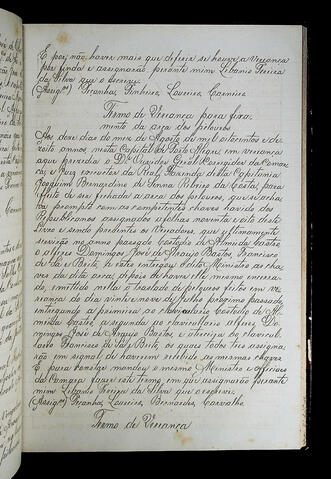 E por não haver mais que deferir se houve a Vereança
por finda e assignarão, perante mim Libanio Pereira
da Silva que o escrevi.
(Assig.os) Peçanha, Pinheiro, Loureiro, Carneiro
Termo de Vereança para fixa-
mento da arca dos pelouros
Aos doze dias do mez de Agosto de mil e oitocentos e de-
zoito annos nesta Capital de Porto Alegre em vereança
que presedio o Dr. Ouvidor Geral Corregedor da Comar-
ca, e Juiz corrector da Real Fazenda desta Capitania
Joaquim Bernardino de Senna Ribeiro da Costa, para
effeito de ser fechada a arca dos pelouros, que se achas-
se prompta com as competentes chaves havida dos
Republicanos assignados a folhas noventa e oito deste
livro e sendo prezentes os Vereadores, que ultimamente
servirão no anno passado Custodio de Almeida Castro
o alferes Domingos José de Araujo Bastos, Francisco
de Sá e Brito, a estes intregou o dito Ministro as cha-
ves da dita arca, depois de haver elle mesmo encerra-
do, emitido nella o traslado de pelouros feitos em ve-
reança do dia vinte e nove de Julho proximo passado,
intregando a primeira ao claviculario Custodio de Al-
meida Castro a segunda ao claviculario Alferes Do-
mingos José de Araujo Bastos, a terceira ao clavicul-
lario Francisco de Sá Brito, os quaes todos tres assigna-
rão em signal de haverem recebido as mesmas chaves
E para constar mandou o mesmo Ministro e officiaes
da Camara fazer este termo, em que assignarão perante
mim Libanio Pereira da Silva que o escrevi.
(Assig.os) Peçanha, Loureiro, Bernardes, Carvalho
Termo de Vereança